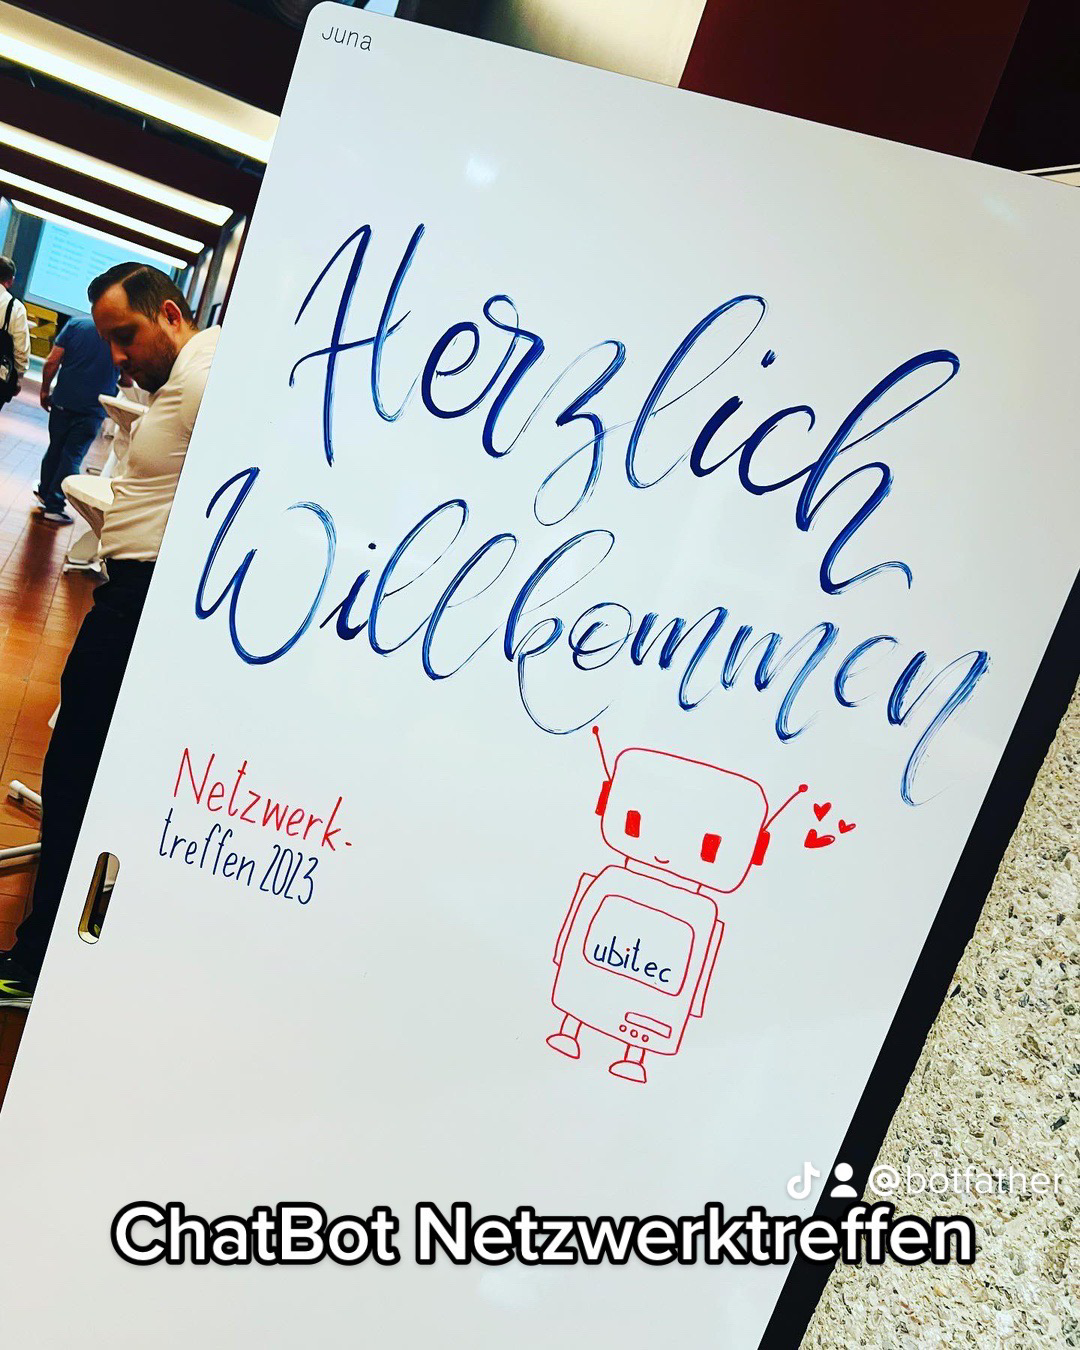 Juna
Herzlich
Willkommen
Netzwerk-
treffen 2023
ubitec
@botfather
ChatBot Netzwerktreffen